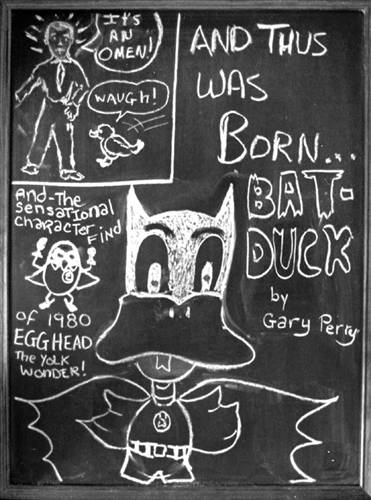 IT'S
AN
OMEN!
WAUGH!
AND THUS
WAS
BORN...
BAT-
DUCK
by
Gary Perry
And-The
Sensational
Character
Find
of 1980
EGGHEAD
The YOLK
WONDER!